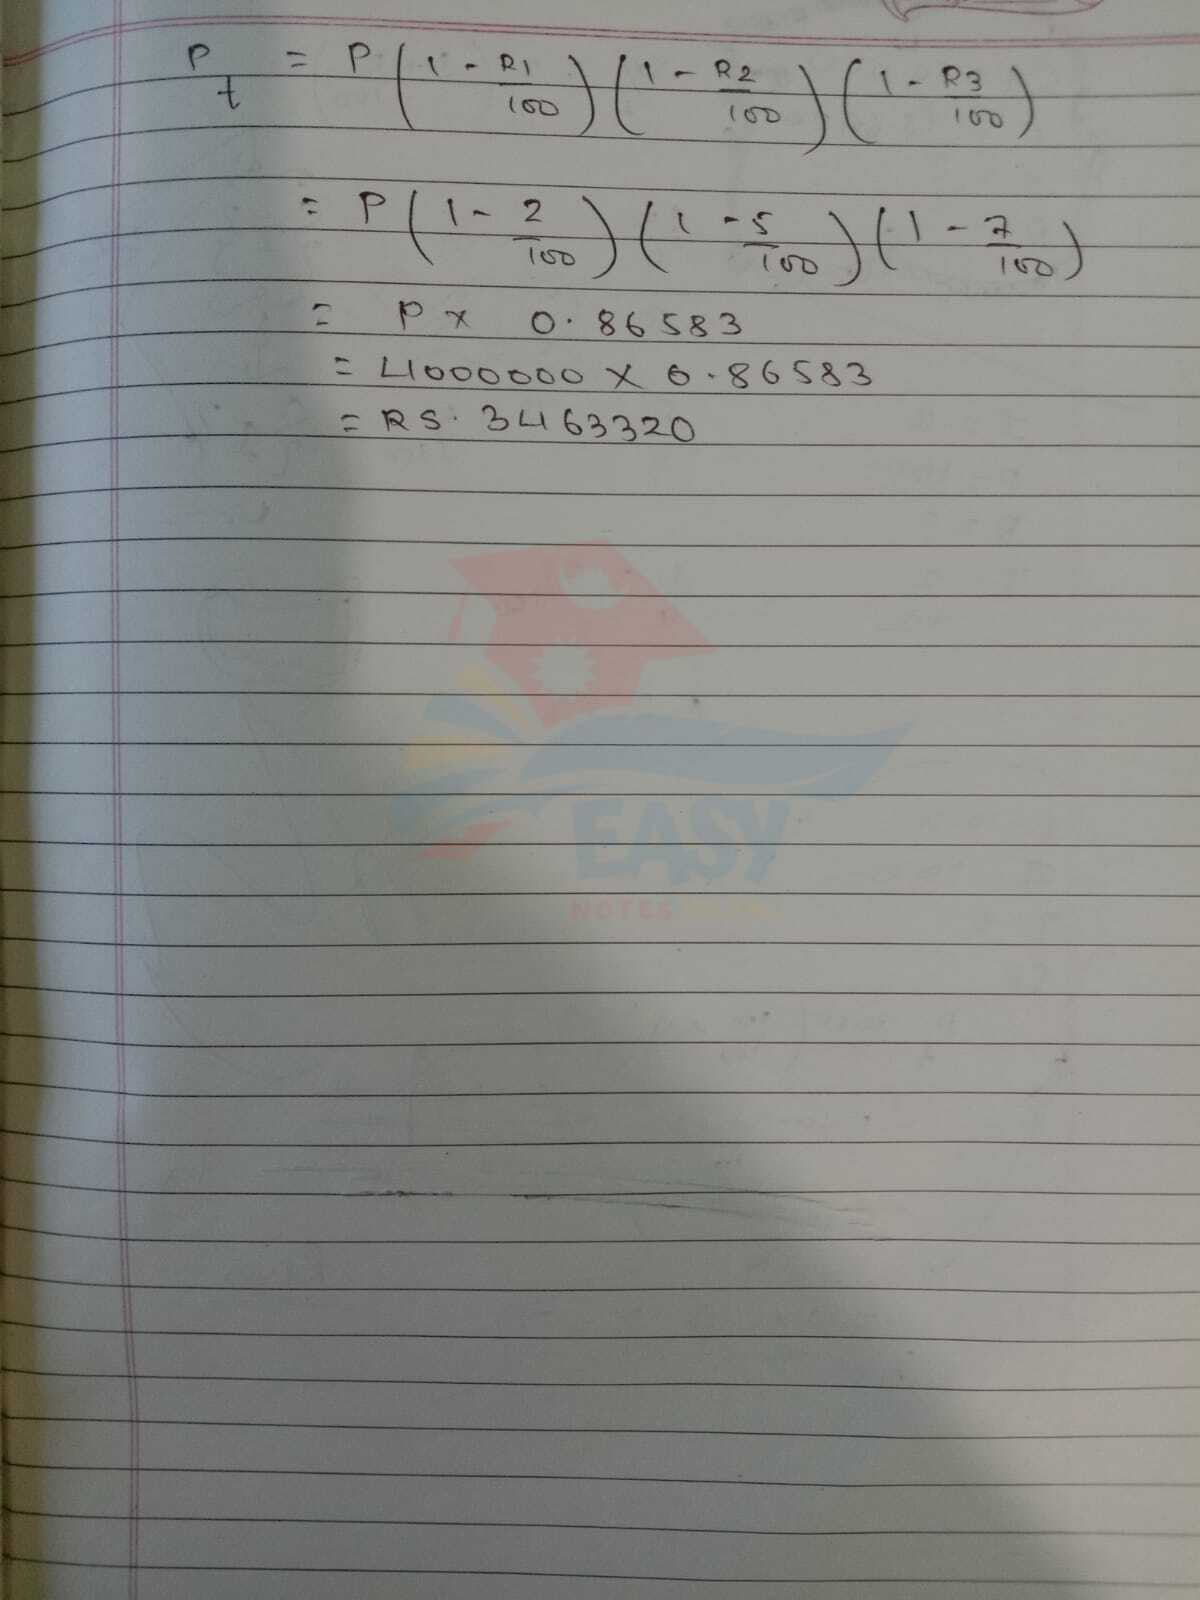 P t = P (1 - R1/100) (1 - R2/100) (1 - R3/100)
= P (1 - 2/100) (1 - 5/100) (1 - 7/100)
= P x 0.86583
= 4000000 x 0.86583
= RS. 3463320
EASY
NOTES